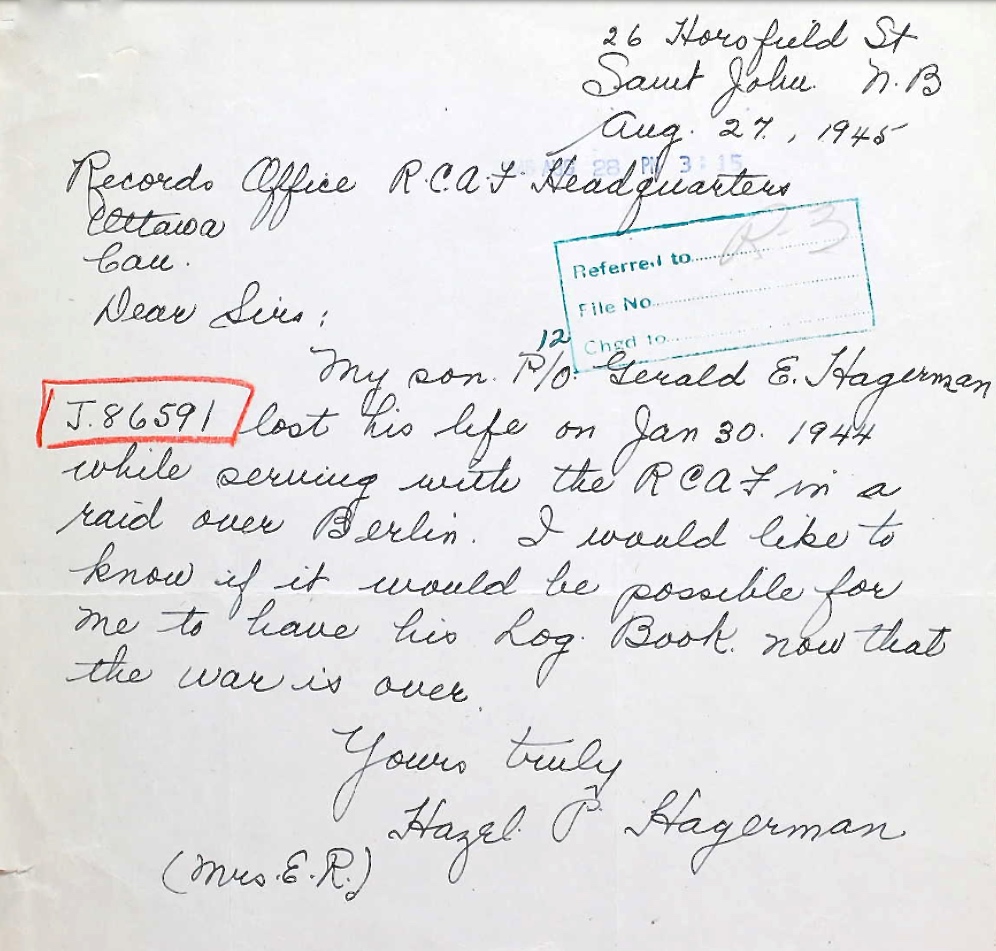 26 Horsfield St
Saint John N.B
Aug. 27, 1945
AUG 28 PM 3:15
Records Office R.C.A.F Headquarters
Ottawa
Can.
Referred to R-3
File No.
Chgd to
Dear Sirs:
12
My son P/O Gerald E. Hagerman
J.86591 lost his life on Jan 30. 1944
while serving with the RCAF in a
raid over Berlin. I would like to
know if it would be possible for
me to have his Log Book now that
the war is over.
Yours truly
Hazel P. Hagerman
(Mrs. E.R.)